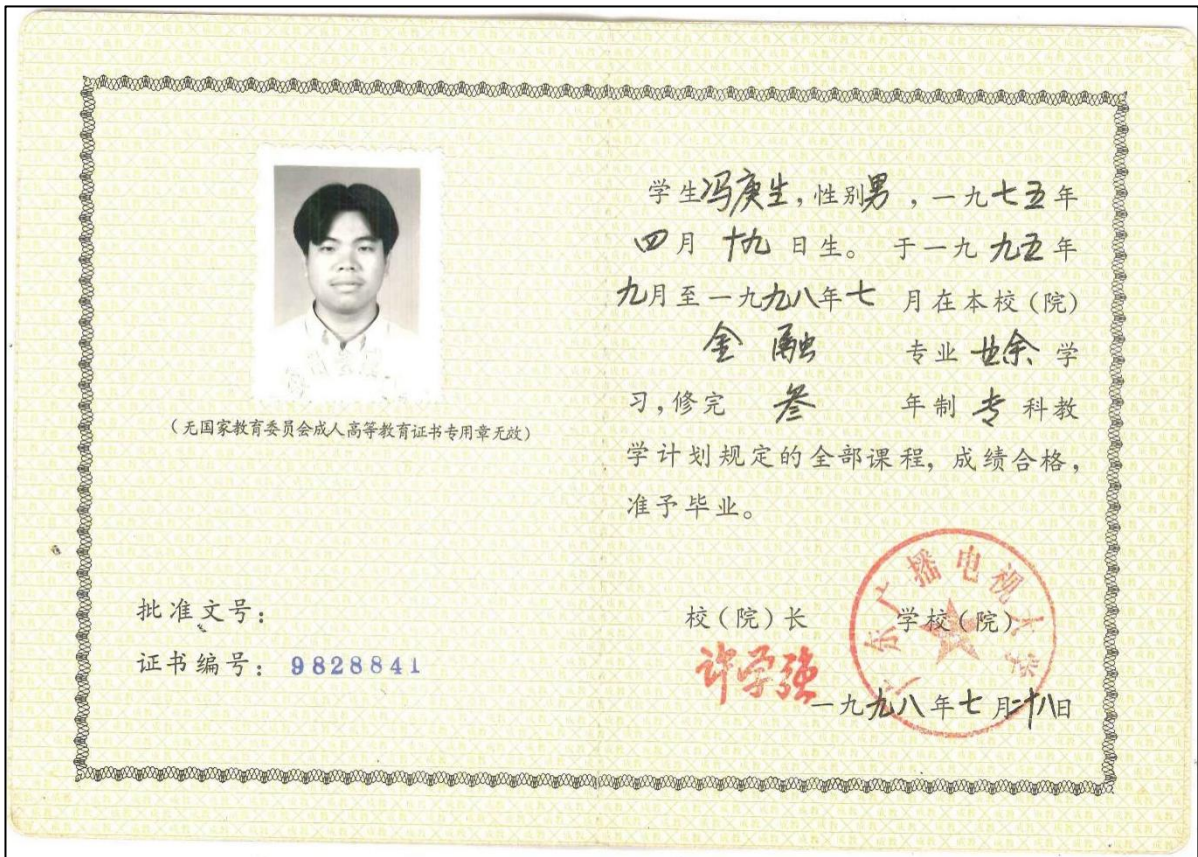 (无国家教育委员会成人高等教育证书专用章无效)
批准文号:
证书编号: 9828841
学生冯庚生,性别男,一九七五年
四月十九日生。于一九九五年
九月至一九九八年七月在本校(院)
金融 专业业余学
习,修完 叁 年制专科教
学计划规定的全部课程,成绩合格,
准予毕业。
校(院)长 学校(院)
许学强
广东广播电视大学
一九九八年七月二十八日